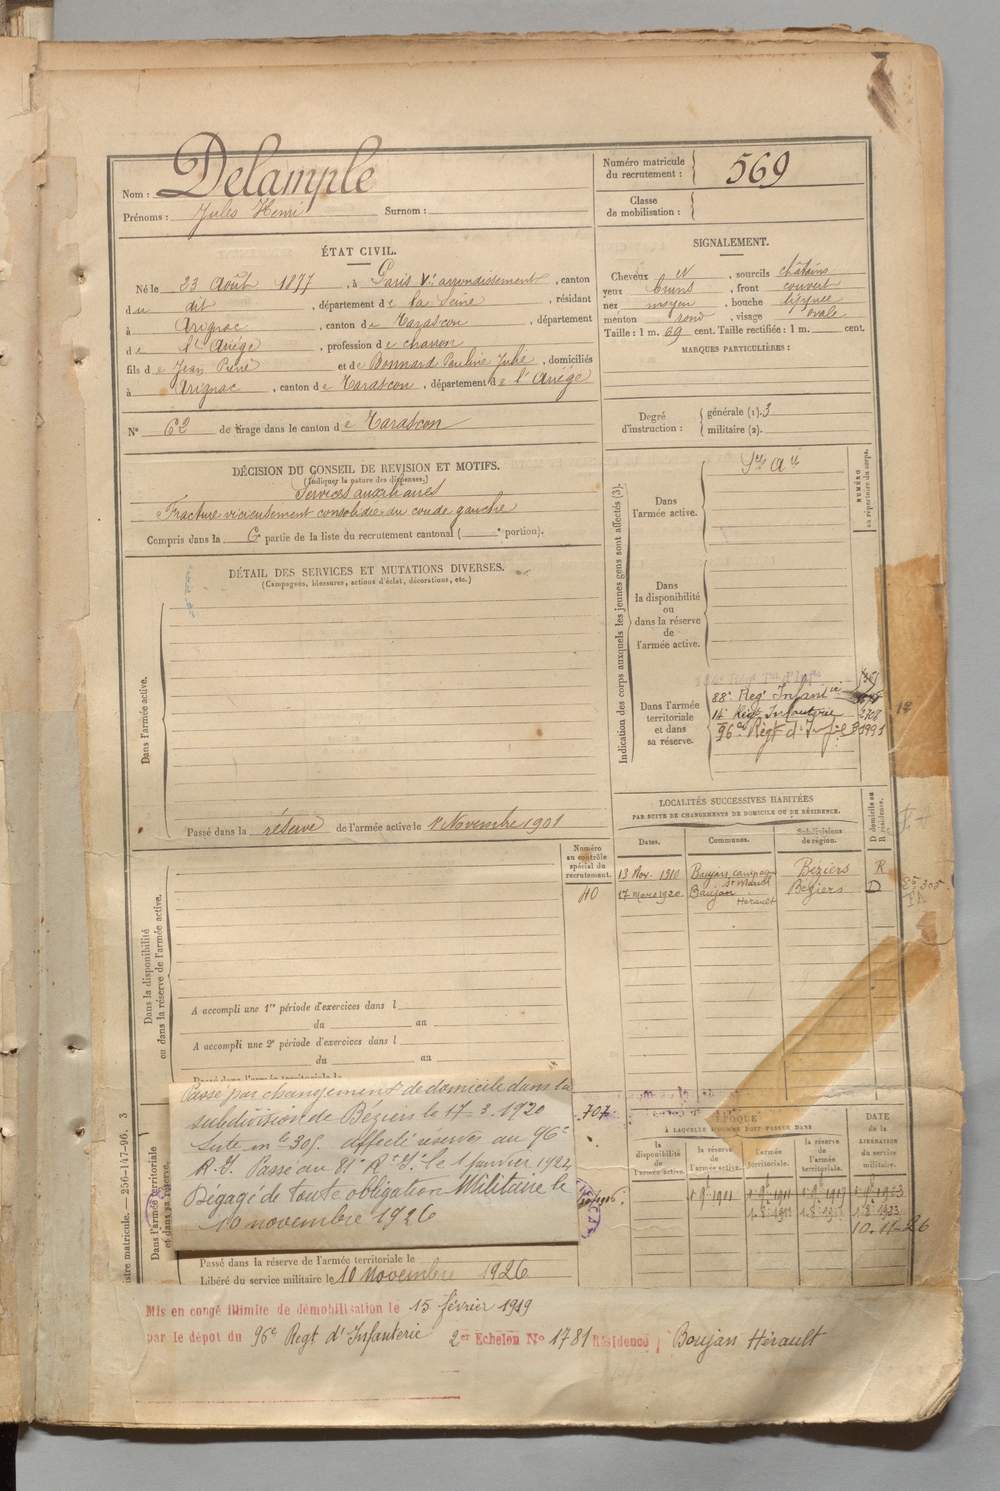 Nom : Delample
Prénoms : Jules Henri Surnom :
Numéro matricule du recrutement : 569
Classe de mobilisation :
ÉTAT CIVIL.
Né le 23 Août 1877, à Paris V.e arrondissement, canton
du dit, département de la Seine, résidant
à Arignac, canton de Tarascon, département
de l'Ariège, profession de charron
fils de Jean Pierre et de Bonnard Pauline Julie, domiciliés
à Arignac, canton de Tarascon, département de l'Ariège
N° 62 de tirage dans le canton de Tarascon
SIGNALEMENT.
Cheveux N, sourcils châtains
yeux bruns, front couvert
nez moyen, bouche moyenne
menton rond, visage ovale
Taille : 1 m. 69 cent. Taille rectifiée : 1 m. cent.
MARQUES PARTICULIÈRES :
Degré d'instruction : générale (1). 3
militaire (2).
DÉCISION DU CONSEIL DE REVISION ET MOTIFS.
(Indiquer la nature des dispenses.)
Services auxiliaires
Fracture vicieusement consolidée du coude gauche
Compris dans la 6e partie de la liste du recrutement cantonal ( e portion).
DÉTAIL DES SERVICES ET MUTATIONS DIVERSES.
(Campagnes, blessures, actions d'éclat, décorations, etc.)
Dans l'armée active.
Passé dans la réserve de l'armée active le 1er Novembre 1901
Indication des corps auxquels les jeunes gens sont affectés (3).
NUMÉRO au répertoire du corps.
Dans l'armée active.
Dans la disponibilité ou dans la réserve de l'armée active.
Dans l'armée territoriale et dans sa réserve.
88e Regt Infanterie
14e Regt Infanterie 2708
96e Regt d'Infie
LOCALITÉS SUCCESSIVES HABITÉES
PAR SUITE DE CHANGEMENTS DE DOMICILE OU DE RÉSIDENCE.
Dates. Communes. Subdivisions de région. D domicile ou R résidence.
13 Nov. 1910 Boujan, campagne Béziers R
17 Mars 1920 Boujan Hérault Béziers D
Numéro au contrôle spécial du recrutement.
40
Dans la disponibilité ou dans la réserve de l'armée active.
A accompli une 1re période d'exercices dans l
du au
A accompli une 2e période d'exercices dans l
du au
Passé par changement de domicile dans la
subdivision de Béziers le 17-3-1920
Liste mle 305. affecté réserves au 96e
R.I. Passé au 81e Rt It le 1 Janvier 1922
Dégagé de toute obligation Militaire le
10 novembre 1926
707
Dans l'armée territoriale et dans sa réserve.
Passé dans la réserve de l'armée territoriale le
Libéré du service militaire le 10 Novembre 1926
ÉPOQUE
À LAQUELLE L'HOMME DOIT PASSER DANS
la disponibilité de l'armée active. la réserve de l'armée active. l'armée territoriale. la réserve de l'armée territoriale. DATE de la LIBÉRATION du service militaire.
10.11-26
matricule. — 256-147-96. 3
Mis en congé illimité de démobilisation le 15 février 1919
par le dépôt du 96e Regt d'Infanterie 2er Echelon N° 1781 Résidence Boujan Hérault